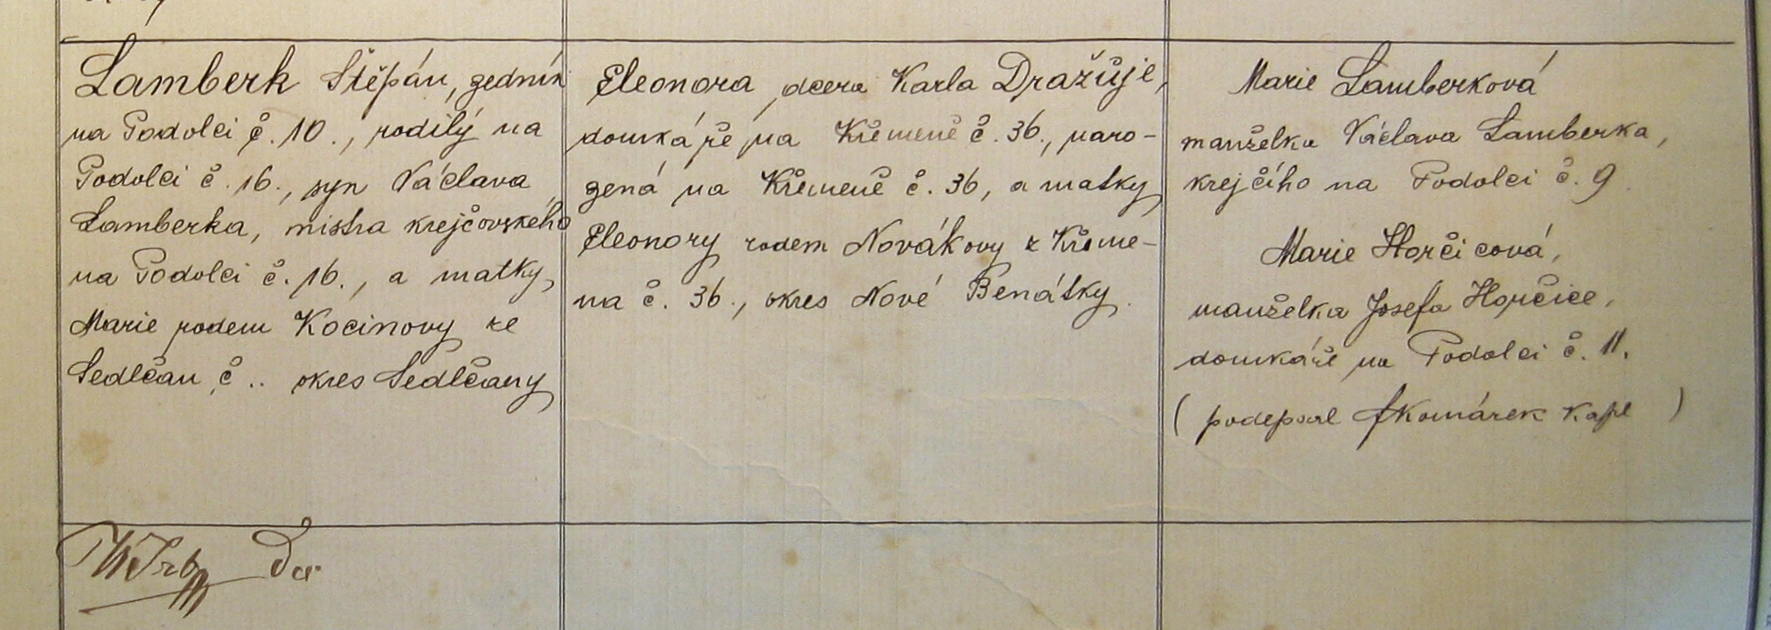 Lamberk Štěpán, zedník
na Podolci č. 10., rodilý na
Podolci č. 16., syn Václava
Lamberka, mistra krejčovského
na Podolci č. 16., a matky
Marie rodem Kocinovy ze
Sedlčan č .. okres Sedlčany
Eleonora, dcera Karla Dražuje,
domkáře na Křemeně č. 36., naro-
zená na Křemeně č. 36, a matky
Eleonory rodem Novákovy z Křeme-
na č. 36., okres Nové Benátky.
Marie Lamberková
manželka Václava Lamberka,
krejčího na Podolci č. 9.
Marie Horčicová,
manželka Josefa Horčice,
domkáře na Podolci č. 11.
( podepsal Komárek kapl )